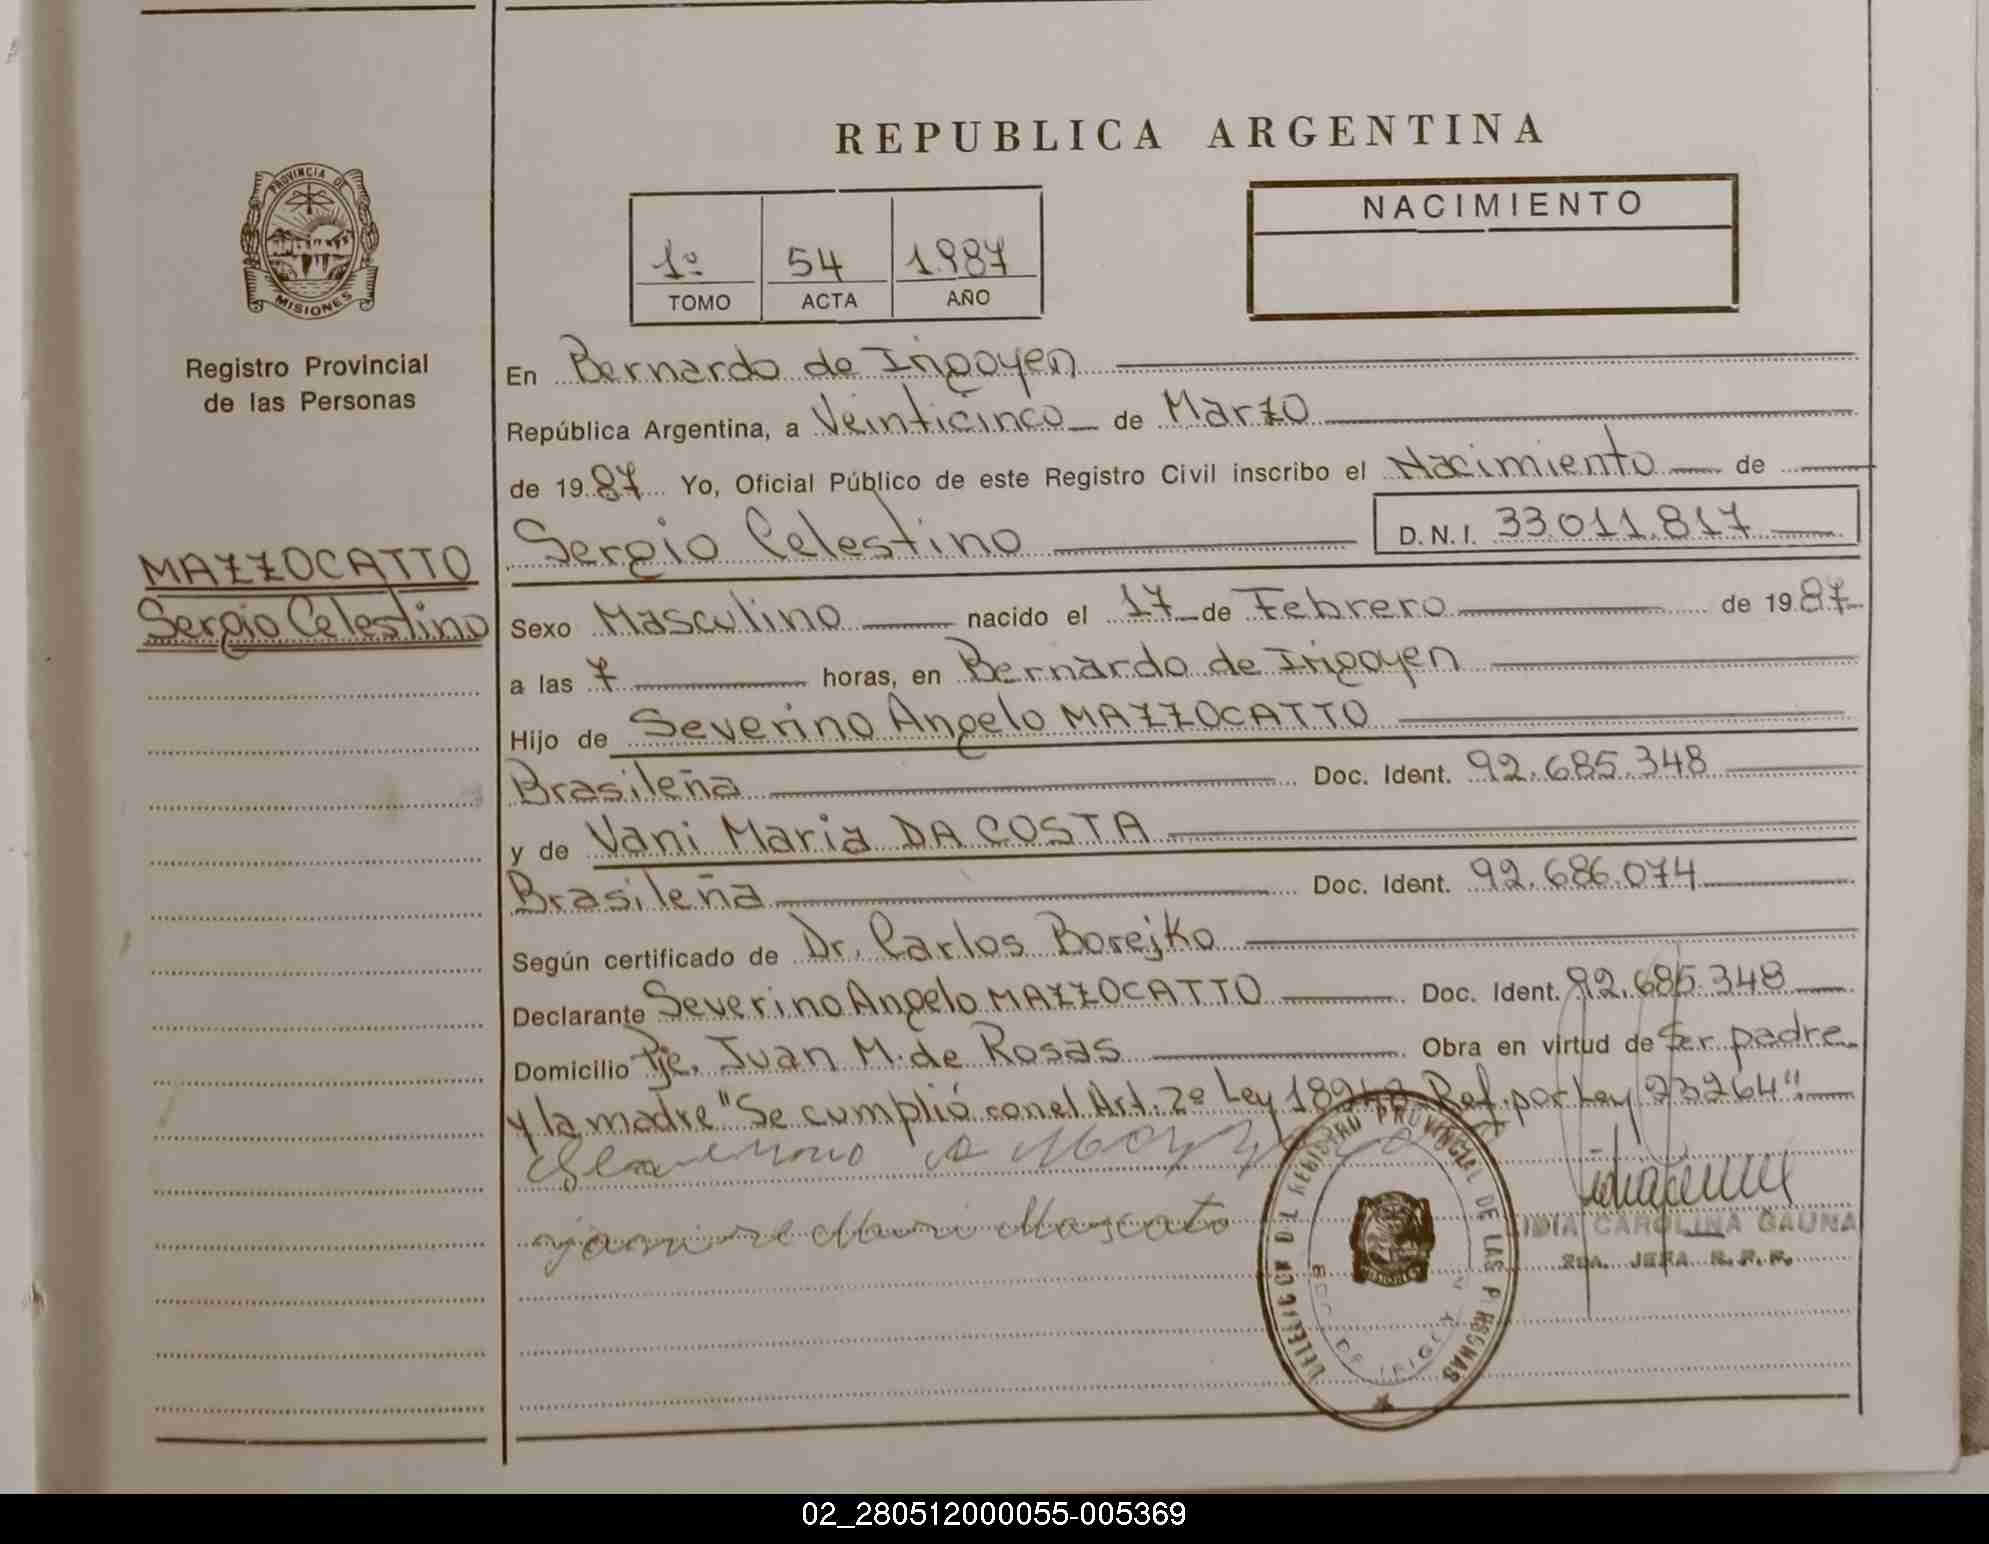 REPUBLICA ARGENTINA
PROVINCIA DE
MISIONES
Registro Provincial
de las Personas
1º 54 1987
TOMO ACTA AÑO
NACIMIENTO
En Bernardo de Irigoyen
República Argentina, a Veinticinco de Marzo
de 1987 Yo, Oficial Público de este Registro Civil inscribo el Nacimiento de
Sergio Celestino D.N.I. 33.011.817
MAZZOCATTO
Sergio Celestino
Sexo Masculino nacido el 17 de Febrero de 1987
a las 7 horas, en Bernardo de Irigoyen
Hijo de Severino Angelo MAZZOCATTO
Brasileña Doc. Ident. 92.685.348
y de Vani Maria DA COSTA
Brasileña Doc. Ident. 92.686.074
Según certificado de Dr. Carlos Borejko
Declarante Severino Angelo MAZZOCATTO Doc. Ident. 92.685.348
Domicilio Pje. Juan M. de Rosas Obra en virtud de Ser padre
y la madre "Se cumplió con el Art. 2º Ley 18248 Ref. por Ley 23264"
DELEGACION DEL REGISTRO PROVINCIAL DE LAS PERSONAS
BDO. DE IRIGOYEN
LIDIA CAROLINA GAUNA
2DA. JEFA R.P.P.
02_280512000055-005369